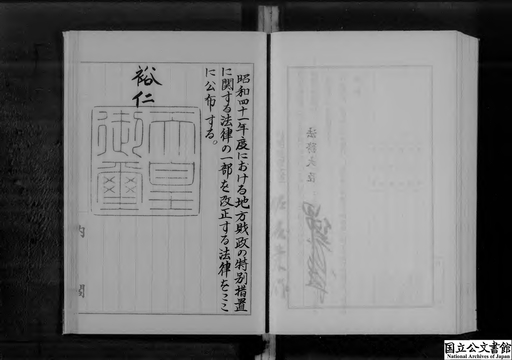 法務大臣
昭和四十一年度における地方財政の特別措置
に関する法律の一部を改正する法律をここ
に公布する。
裕仁
天皇
御璽
内閣
国立公文書館
National Archives of Japan